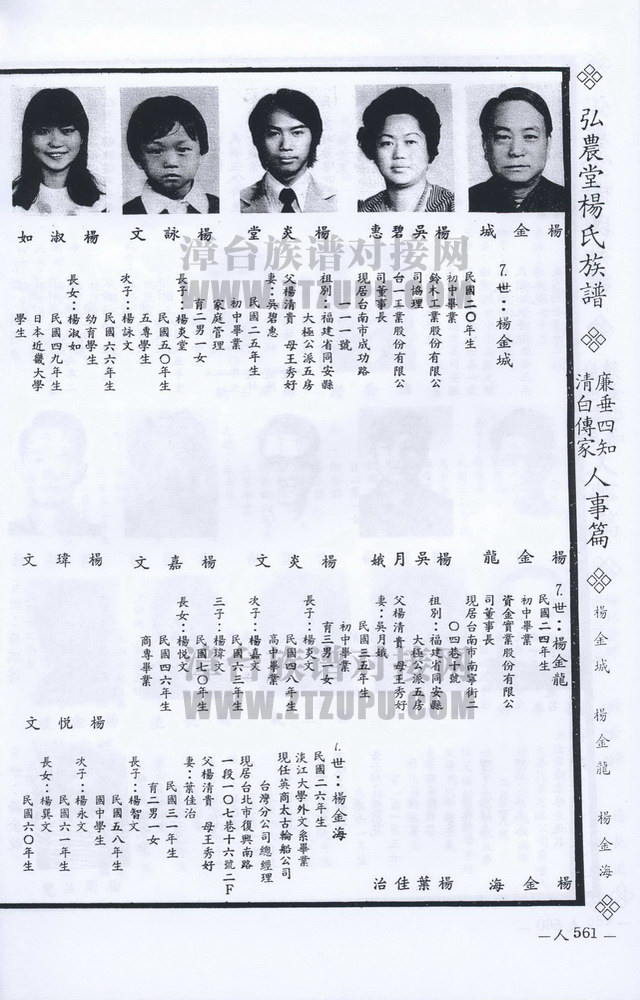 弘農堂楊氏族譜
廉垂四知
清白傳家
人事篇
楊金城　楊金龍　楊金海
人 561
楊金城
楊吳碧惠
楊炎堂
楊詠文
楊淑如
7.世：楊金城
民國二0年生
初中畢業
鈴木工業股份有限公
司協理
台一工業股份有限公
司董事長
現居台南市成功路
一一一號
祖別：福建省同安縣
大極公派五房
父楊清貴　母王秀好
妻：吳碧惠
民國二五年生
初中畢業
家庭管理
育二男一女
長子：楊炎堂
民國五0年生
五專學生
次子：楊詠文
民國六六年生
幼育學生
長女：楊淑如
民國四九年生
日本近畿大學
學生
楊金龍
楊吳月娥
楊炎文
楊嘉文
楊瑋文
7.世：楊金龍
民國二四年生
初中畢業
資金實業股份有限公
司董事長
現居台南市南寧街二
0四巷十號
祖別：福建省同安縣
大極公派五房
父楊清貴　母王秀好
妻：吳月娥
民國三五年生
初中畢業
育三男一女
長子：楊炎文
民國四八年生
高中畢業
次子：楊嘉文
民國六三年生
三子：楊瑋文
民國七0年生
長女：楊悅文
民國四六年生
商專畢業
楊悅文
楊金海
楊葉佳治
世：楊金海
民國二六年生
淡江大學外文系畢業
現任英商太古輪船公司
台灣分公司總經理
現居台北市復興南路
一段一0七巷十六號二F
父楊清貴　母王秀好
妻：葉佳治
民國三一年生
育二男一女
長子：楊智文
民國五八年生
國中學生
次子：楊永文
民國六一年生
長女：楊巽文
民國六0年生
漳台族谱对接网
WWW.ZTZUPU.COM
漳台族谱对接网
WWW.ZTZUPU.COM